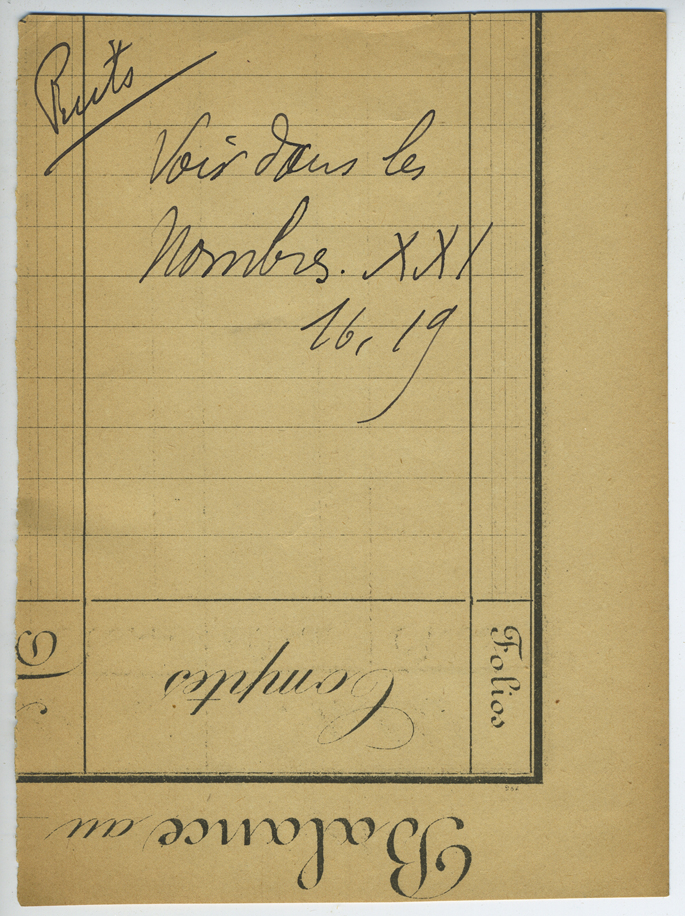 Puits
Voir dans les
Nombres. XXI
16, 19
Folios
Comptes
Balance au